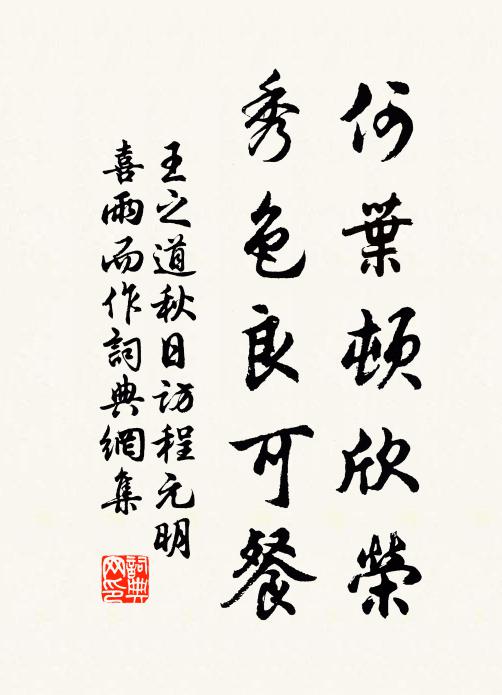 何葉頓欣榮
秀色良可餐
王之道秋日訪程元明
喜雨而作詞典網集
詞典网印